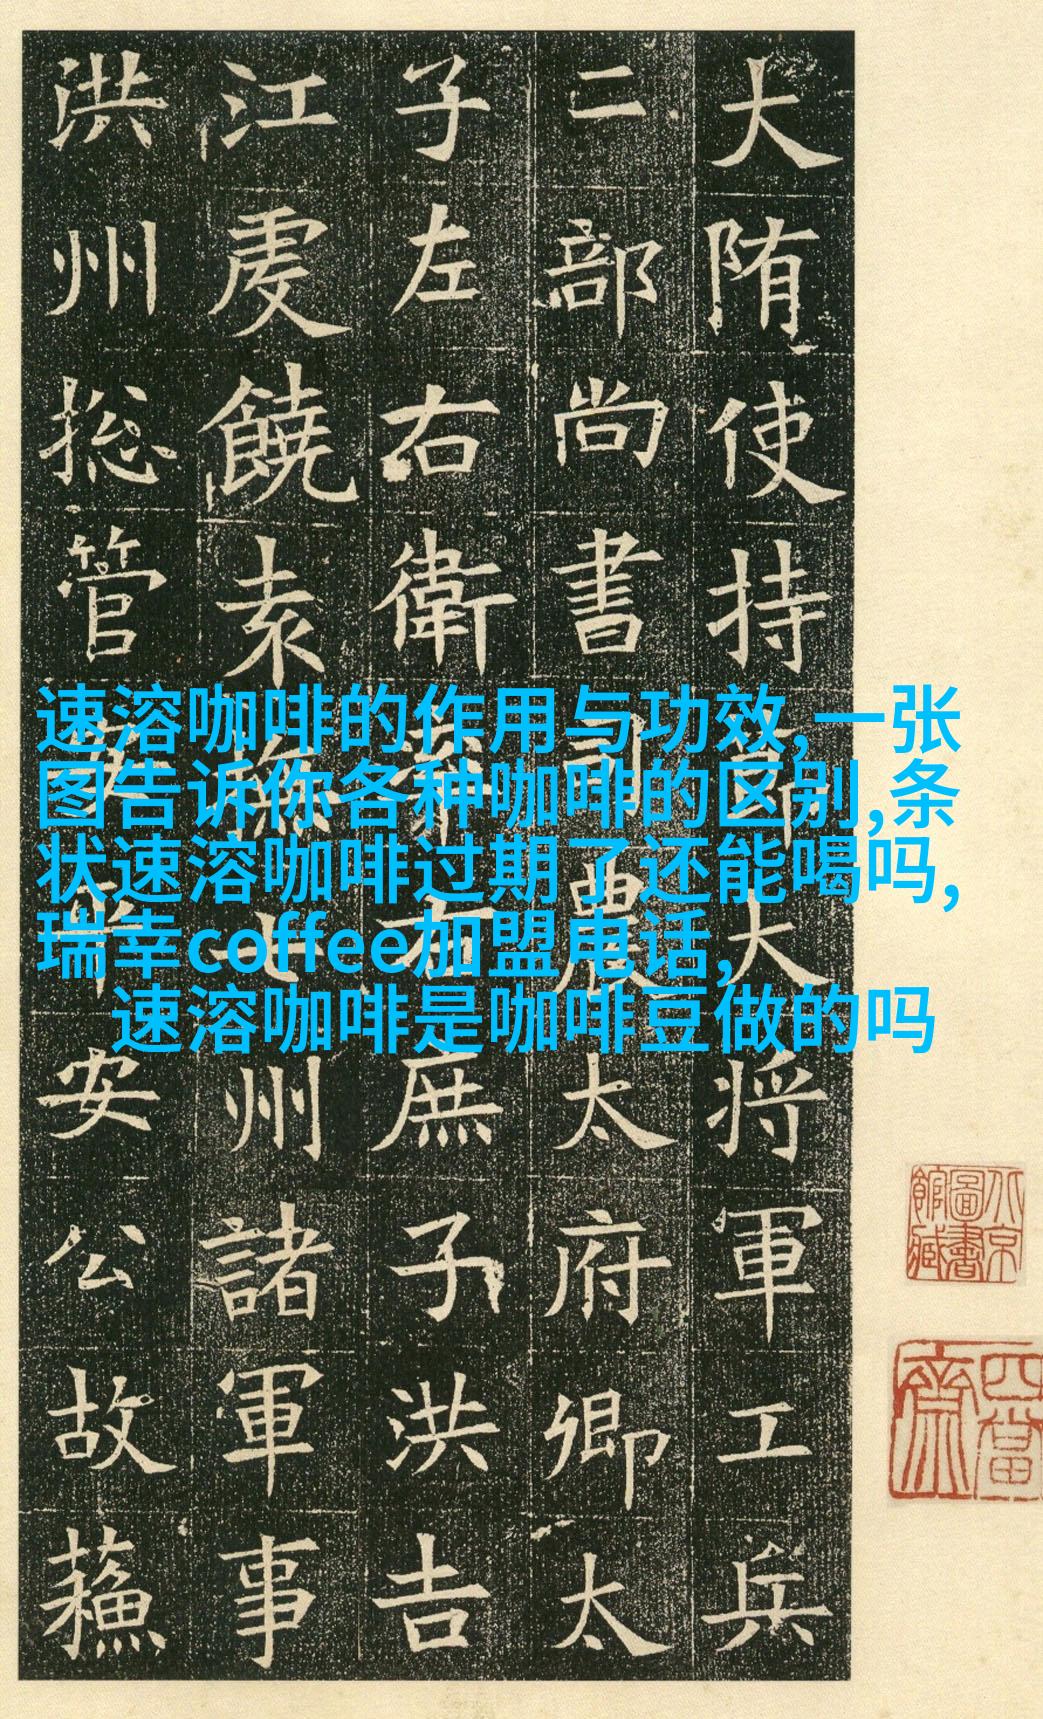 大陏使持大将軍工兵
二部尚書司農太府卿太
子左右衛右庶子洪吉
江虔饒袁撫七州諸軍事
洪州揔管平安公故蘓
速溶咖啡的作用与功效,一张
图告诉你各种咖啡的区别,条
状速溶咖啡过期了还能喝吗,
瑞幸coffee加盟电话,
速溶咖啡是咖啡豆做的吗
北京圖書館藏
四當齋